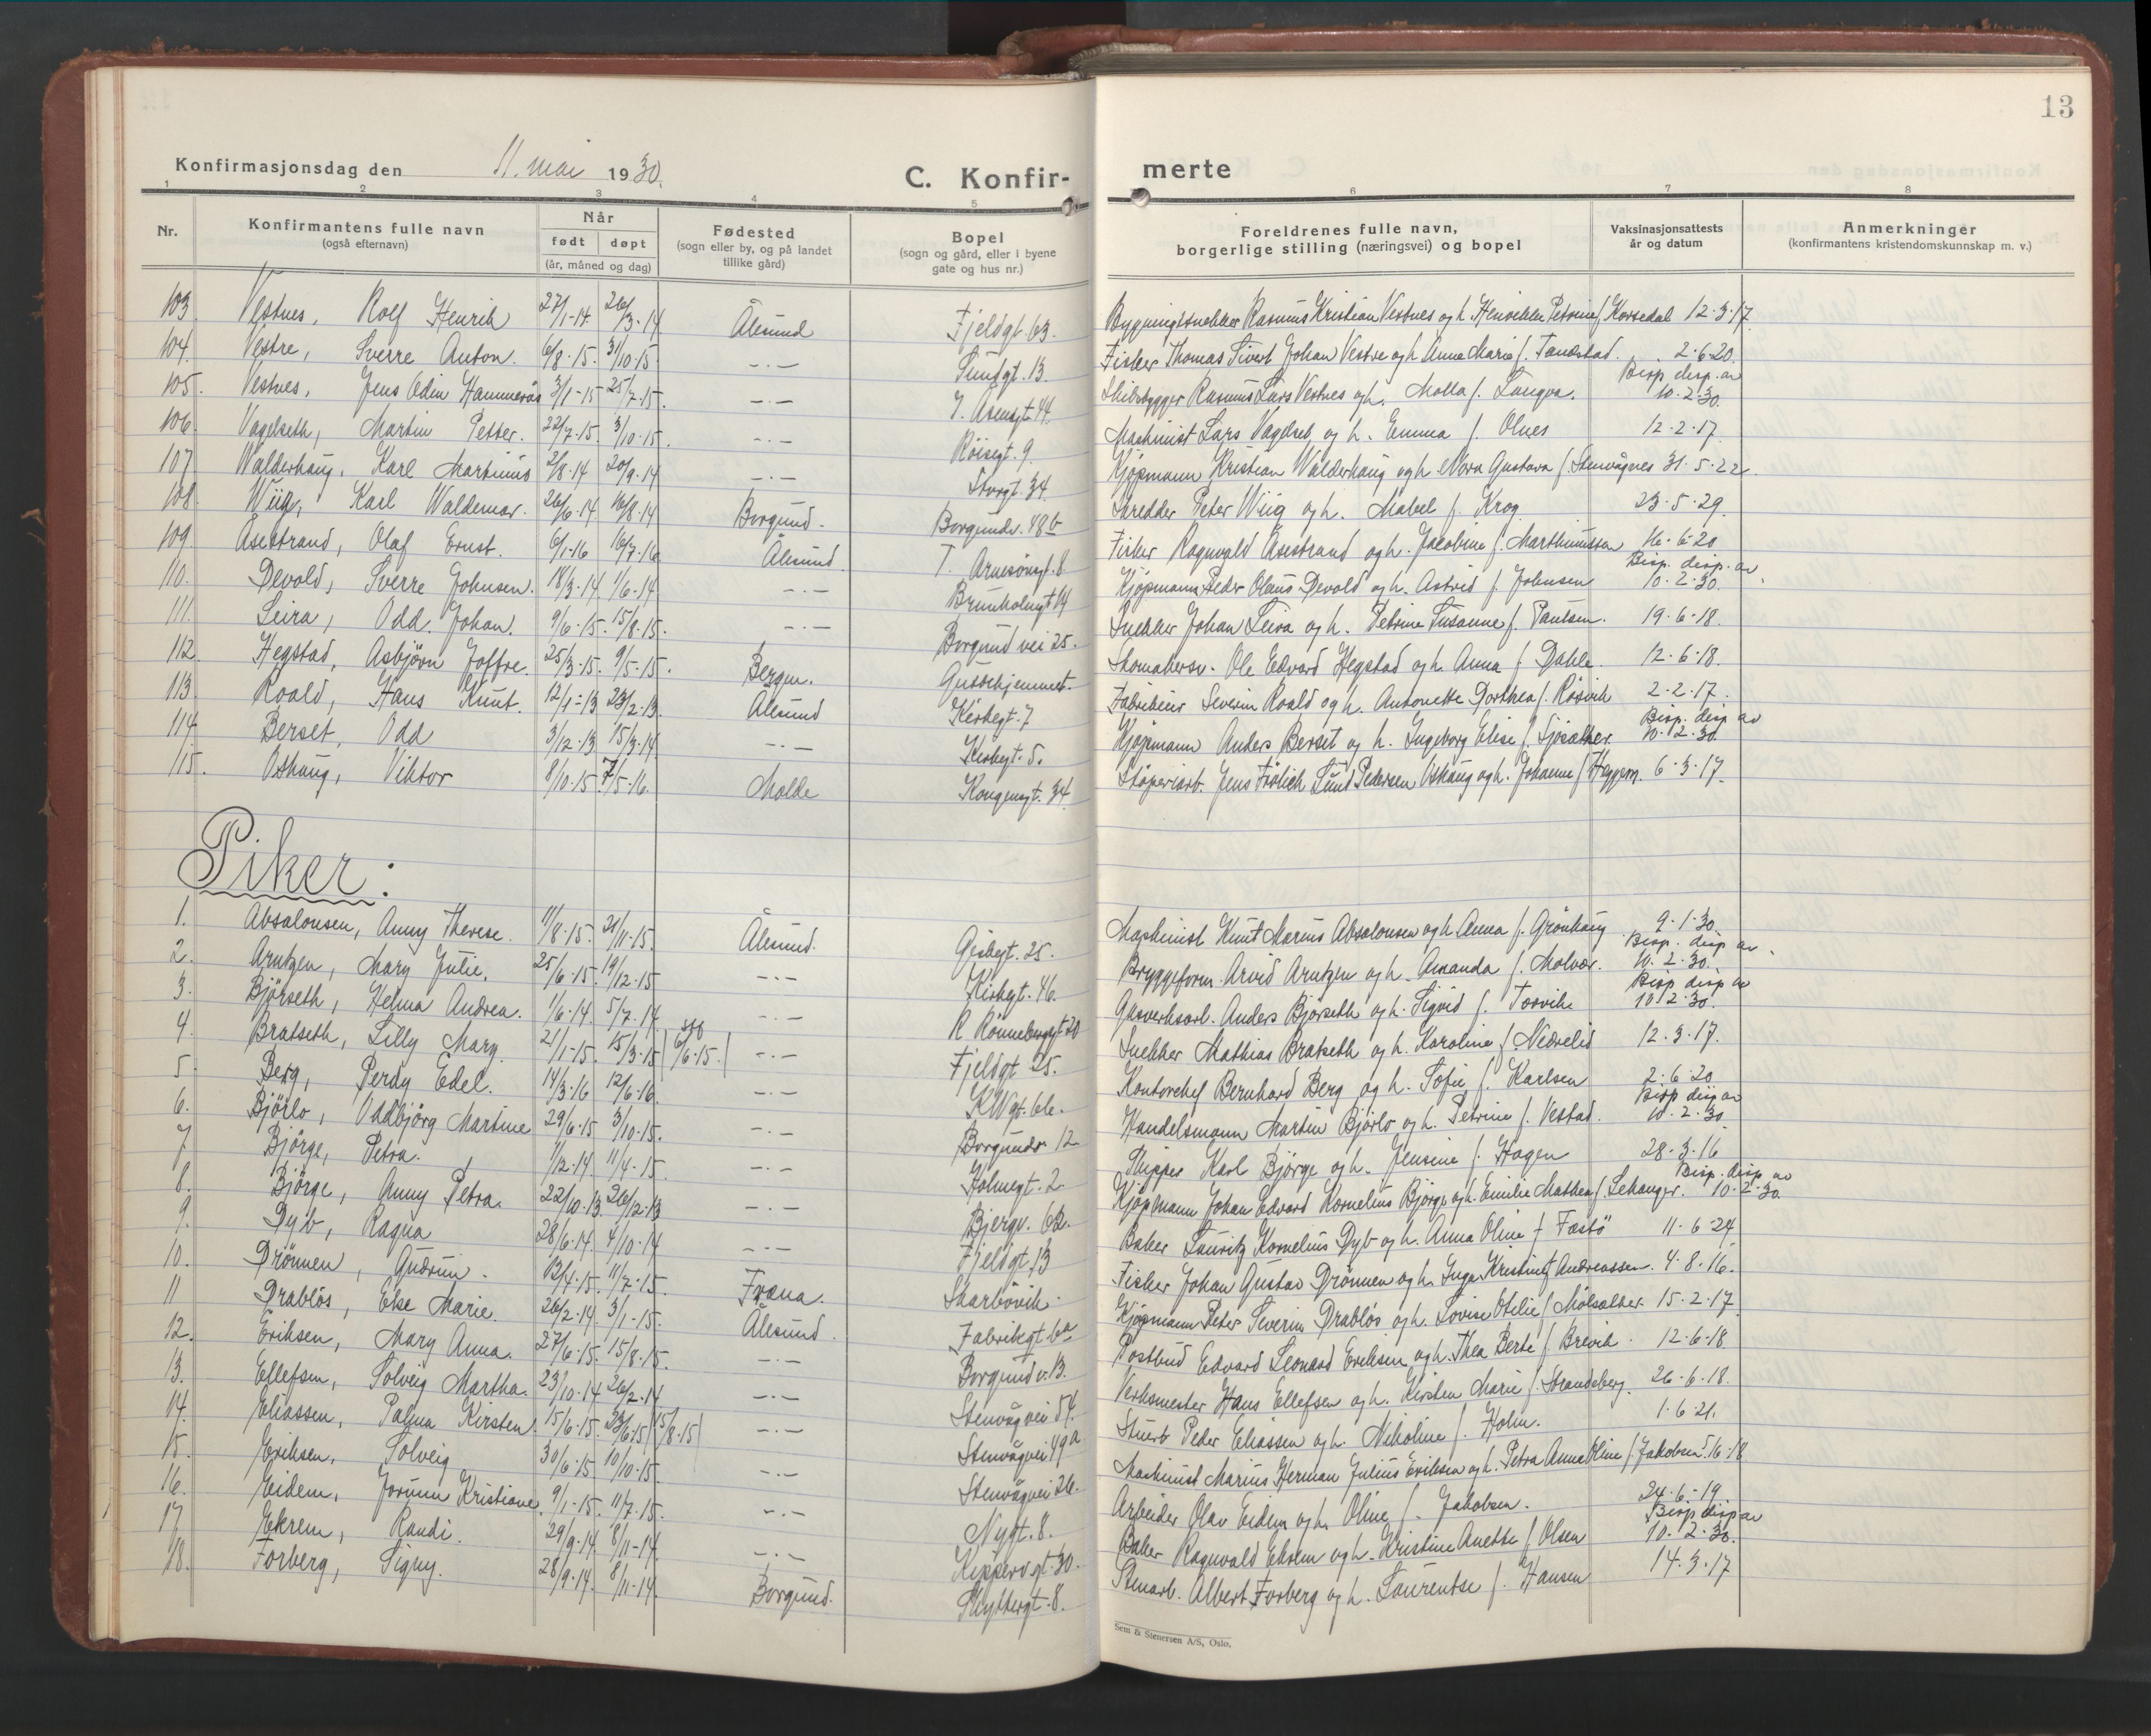 13
Konfirmasjonsdag den 11. mai 1930.
C. Konfirmerte
1 2 3 4 5 6 7 8
Nr. Konfirmantens fulle navn (også efternavn) Når født døpt (år, måned og dag) Fødested (sogn eller by, og på landet tillike gård) Bopel (sogn og gård, eller i byene gate og hus nr.) Foreldrenes fulle navn, borgerlige stilling (næringsvei) og bopel Vaksinasjonsattests år og datum Anmerkninger (konfirmantens kristendomskunnskap m. v.)
103. Vestnes, Rolf Henrik 27/1-14 26/3-14 Ålesund Fjeldgt. 63. Bygningssnekker Rasmus Kristian Vestnes og h. Henrikke Petrine f. Korsedal 12-3-17
104. Vestre, Sverre Anton. 6/8-15. 31/10-15 -.- Sundgt. 13. Fisker Thomas Sivert Johan Vestre og h. Anna Marie f. Tandstad. 2-6-20.
105. Vestnes, Jens Odin Hammerås 3/1-15 25/7-15. -.- I. Åsensgt. 44. Skibsbygger Rasmus Lars Vestnes og h. Molla f. Langva. Bisp. disp. av 10.2.30.
106. Vagelseth, Martin Petter. 22/7-15. 3/10-15. -.- Röisegt. 9. Maskinist Lars Vagelset og h. Emma f. Olnes 12-2-17
107 Walderhaug, Karl Martinus 2/8-14 20/9-14 -.- Storgt. 34. Kjøpmann Kristian Walderhaug og h. Nora Gustava f. Stenvågnes 31-5-22.
108. Wiig, Karl Waldemar. 26/6-14 16/8-14 Borgund. Borgundv. 48b Skredder Peter Wiig og h. Mabel f. Krog 23-5-29.
109. Åsestrand, Olaf Ernst. 6/1-16 16/7-16 Ålesund. T. Arnesöngt. 8. Fisker Ragnvald Åsestrand og h. Jakobine f. Marthinussen 16-6-20
110. Devold, Sverre Johnsen. 18/3-14 1/6-14 -.- Brunholmgt 14 Kjøpmann Peder Olaus Devold og h. Astrid f. Johnsen Bisp. disp. av 10-2-30.
111. Leira, Odd. Johan. 9/6-15. 15/8-15. -.- Borgund vei 25. Snekker Johan Leira og h. Petrine Susanne f. Paulsen. 19-6-18.
112. Hegstad, Asbjörn Joffre. 25/3-15. 9/5-15. Bergen. Guttehjemmet. Skomakersv. Ole Edvard Hegstad og h. Anna f. Dahle. 12-6-18.
113. Roald, Hans Knut. 12/1-13 23/2-13. Ålesund Kirkegt. 7 Fabrikeier Severin Roald og h. Antonette Dorthea f. Rösvik 2-2-17.
114 Berset, Odd 3/12-13 15/3-14 -.- Kirkegt. 5. Kjøpmann Anders Berset og h. Ingeborg Elise f. Sjösæther. Bisp. disp. av 10-2-30
115. Oshaug, Viktor 8/10-15. 7/5-16. Molde Kongensgt. 34. Støperiarb. Jens Frölich Lund Pedersen Oshaug og h. Johanne f. Heggem. 6-3-17.
Piker:
1. Absalonsen, Anny Therese. 11/8-15. 21/11-15. Ålesund. Geilegt. 25. Maskinist Knut Marius Absalonsen og h. Anna f. Grönhaug 9-1-30.
2. Arntzen, Mary Julie. 25/6-15. 19/12-15 -.- Kirkegt. 46. Bryggeform. Arvid Arntzen og h. Amanda f. Molvær. Bisp. disp. av 10.2.30.
3. Björseth, Helma Andrea. 1/6-14. 5/7-14. -.- R Rönnebergsgt 20 Gasverksarb. Anders Björseth og h. Sigrid f. Tosvik Bisp disp av 10.2.30.
4. Bratseth, Lilly Mary. 21/1-15. 15/3-15 (stf 6/6-15.) -.- Fjeldgt 25. Snekker Mathias Bratseth og h. Karoline f. Nedrelid 12.3.17.
5 Berg, Perdy Edel. 14/3-16 12/6-16. -.- KWgt. 66. Kontorchef Bernhard Berg og h. Sofie f. Karlsen 2-6-20
6. Björlo, Oddbjörg Martine 29/6-15 3/10-15. -.- Borgundv. 12 Handelsmann Martin Björlo og h. Petrine f. Vestad. Bisp disp av 10-2-30
7 Björge, Petra. 1/12-14. 11/4-15. -.- Holmegt. 2. Skipper Karl Björge og h. Jensine f. Hagen 28-3-16
8. Björge, Anny Petra. 22/10-13. 26/12-13 -.- Bjergv. 6B. Kjøpmann Johan Edvard Kornelius Björge og h. Emilie Mathea f. Lekanger. Bisp. disp av 10-2-30.
9. Dyb, Ragna 28/6-14. 4/10-14 -.- Fjeldgt 13 Baker Lauritz Kornelius Dyb og h. Anna Oline f. Tæstö 11-6-24
10. Drönnen, Gudrun. 13/4-15. 11/7-15. Fræna. Skarbövik. Fisker Johan Gustav Drönnen og h. Inga Kristine f. Andreassen. 4-8-16.
11 Drablös, Else Marie. 26/2-14 3/1-15. Ålesund. Fabrikgt. 6a Kjøpmann Peter Severin Drablös og h. Lovise Otilie f. Molsæther. 15-2-17.
12. Eriksen, Mary Anna. 27/6-15. 15/8-15. -.- Borgund v. 13. Postbud Edvard Leonard Eriksen og h. Thea Berte f. Brevik. 12-6-18.
13. Ellefsen, Solveig Martha. 23/10-14 26/2-14 -.- Stenvågvei 54. Verksmester Hans Ellefsen og h. Kirsten Marie f. Strandeberg. 26-6-18.
14. Eliassen, Palma Kirsten. 15/6-15. 23/6-15 (15/8-15) -.- Stenvågvei 49a Stuert Peder Eliassen og h. Nikoline f. Holm. 1-6-21.
15. Eriksen, Solveig 30/6-15. 10/10-15. -.- Stenvågvei 26. Maskinist Marius Herman Julius Eriksen og h. Petra Anna Oline f. Jakobsen. 5-6-18
16. Eidem, Jorunn Kristiane. 9/1-15. 11/7-15. -.- Nygt. 8. Arbeider Olav Eidem og h. Oline f. Jakobsen. 24-6-19
17 Ekrem, Randi. 29/9-14 8/11-14. -.- Kipperv gt. 30. Baker Ragnvald Ekrem og h. Kristine Anette f. Olsen Bisp disp av 10.2.30.
18. Forberg, Signy. 28/9-14. 8/11-14. Borgund. Skyttergt. 8. Stenarb. Albert Forberg og h. Laurentse f. Hansen 14-3-17
Sem & Stenersen A/S, Oslo.